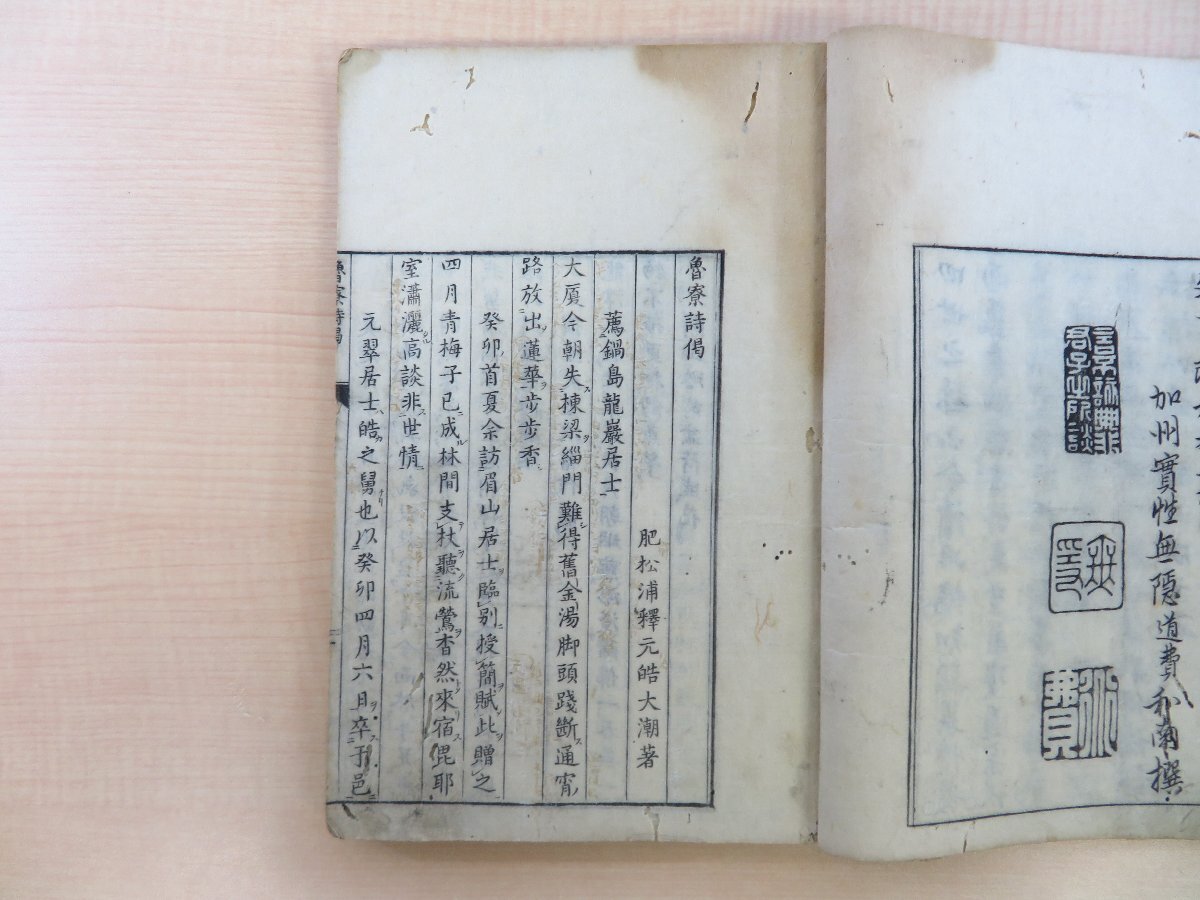 加州實性無隱道費和南撰
魯寮詩偈
肥松浦釋元皓大潮著
薦鍋島龍巖居士
大厦今朝失棟梁緇門難得舊金湯脚頭踐斷通霄
路放出蓮華步步香
癸卯首夏余訪眉山居士臨別授簡賦此贈之
四月青梅子已成林間支杖聽流鶯杳然來宿毘耶
室瀟灑高談非世情
元翠居士皓之舅也以癸卯四月六日卒于邑
魯寮詩偈